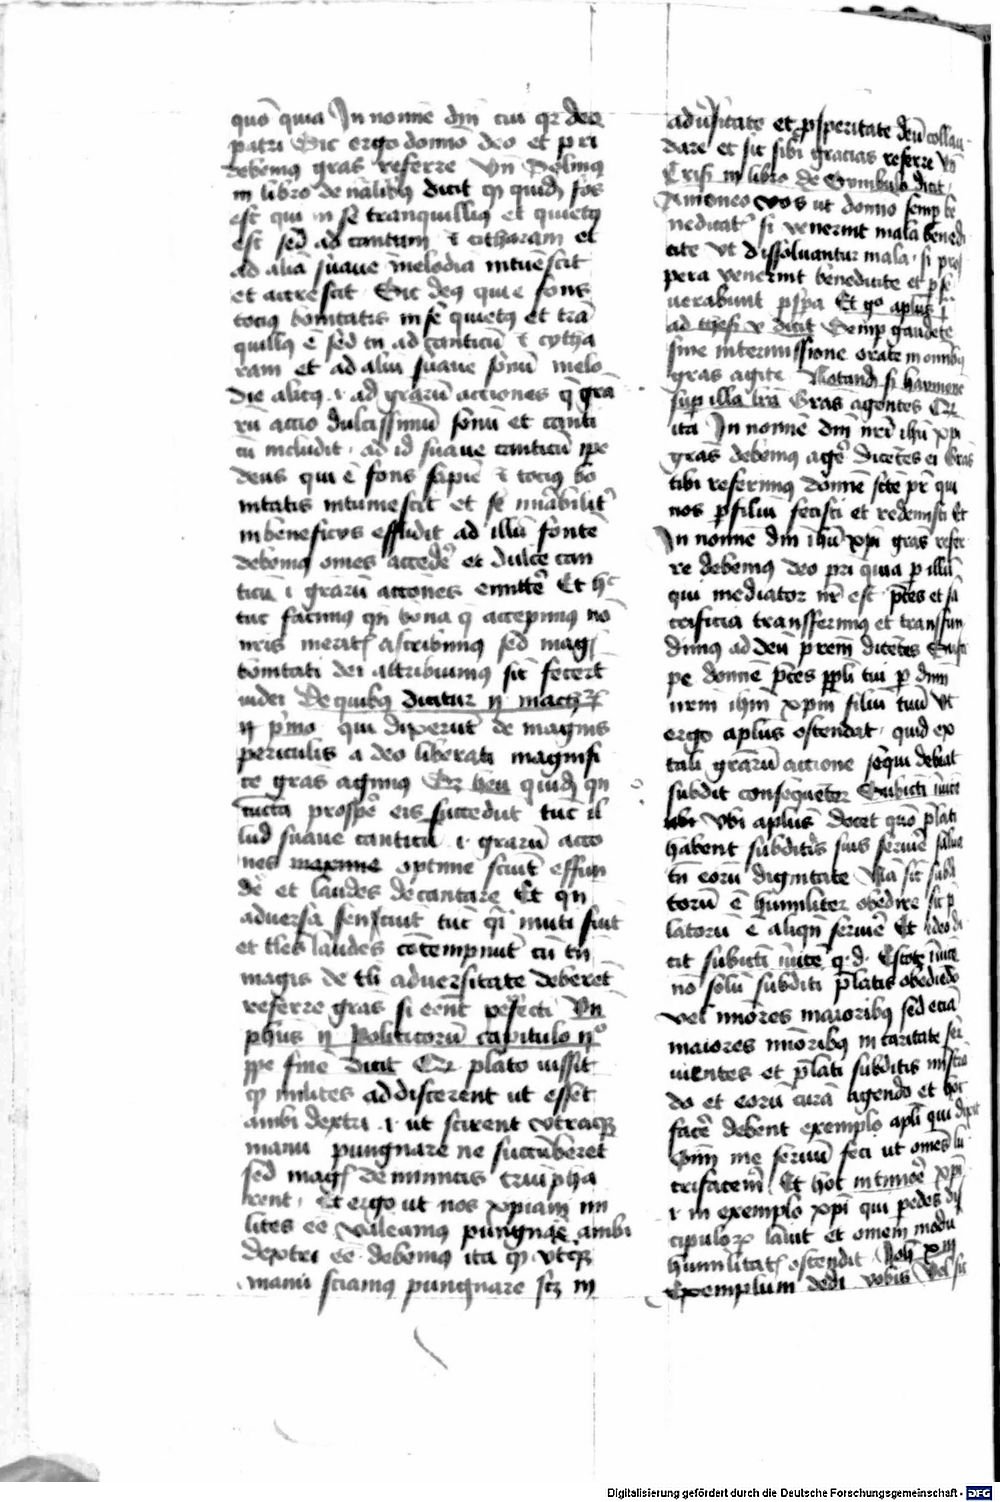 quō quia In noīe dm̄ cui qꝫ deo
patri Sic ergo domīo deo et pri
debemꝰ gr̄as referre Vn̄ Solinꝰ
in libro de dicit ꝙ quidā fōs
est qui in se tranquillꝰ et quietꝰ
est sed ad cantum ⁊ citharam et
ad aliā suaue melodia intuescit
et accrescit Sic deꝰ qui ē fons
tociꝰ bonitatis in se quietꝰ et trā
quillꝰ ē sed tn̄ ad canticū ⁊ cytha
ram et ad aliū suaue sonū melo
die alicꝰ .i. ad grarū acciones q̄ gra
rū actio dulcissimū sonū et canti
cū includit ad id suaue canticū ip̄e
deus qui ē fons sapiē ⁊ tociꝰ bo
nitatis intumescit et se mirabilit'
in beneficiis effūdit ad illū fontē
debemꝰ omēs accede' et dulce can
ticū i grarū acciones emitte' Et hͨ
tūc facimꝰ qn̄ bona q̄ accepimꝰ nō
nr̄is merit' ascribimꝰ sed magꝭ
bonitati dei attribuimꝰ sic fecerūt
iudei De quibꝰ dicitur ij mach
ij p'mo qui dixerūt de magnis
periculis a deo liberati magnifi
ce gr̄as agimꝰ Sꝫ heu quidā qn̄
cūcta prospe' eis succedūt tūc il
lud suaue canticū .i. grarū actio
nes optime sciūt effun
de' et laudes decantare Et qn̄
aduersa senciūt tūc q̄i muti fiūt
et tles laudes cōtempnūt cū tn̄
magis de tli aduersitate deberēt
referre gr̄as si eēnt ꝑfecti Vn̄
ph̄us ij Politicorū capitulo ijº
ꝓpe finē dicit Sꝫ plato iussit
ꝙ milites addiscerent ut essēt
ambidextri .i. ut scirent vtraqꝫ
manu pungnare ne succūberēt
sed magꝭ de inimicis triūpha
rent Et ergo ut nos xp̄iani mi
lites ēe valeamus pungnāe ambi
dextri ēe debemus ita ꝙ vtraqꝫ
manu sciamꝰ pungnare scꝫ in
aduersitate et ꝓsperitate deū collau
dare et sic sibi gracias referre Vn̄
Crisꝰ in libro de Symbulo dicit
Amoneo vos ut domīo semp be
nedicatꝭ si venerint mala benedi
cite vt dissoluantur mala si pros
pera venerint benedicite et ꝑse
uerabunt ꝓspa Et gº aplus p
ad thes v dicit Semp gaudete
sine intermissione orate in omībꝰ
gras agite Notandū si
sup illa lr̄a Gras agentes Sꝫ
ita In noīe dm̄ nr̄i ih̄u xp̄i
gras debemꝰ age' dicētes ei Gras
tibi referimꝰ domīe scē pr̄ qui
nos ꝑ filiū fecisti et redemisti Et
In noīe dm̄ ih̄u xp̄i gras refer
re debemꝰ deo pri quia ꝑ illū
qui mediator nr̄ est p̄ces et sa
crificia transferimꝰ et transfun
dimꝰ ad deū prem̄ dicētes Susci
pe domīe p̄ces ppl̄i tui ꝑ dnm̄
nr̄m ih̄m xp̄m filiū tuū Vt
ergo aplus ostendat quid ex
tali grarū accione sequi debeat
subdit consequēter Subiecti inuicē
Vbi aplus docet quō p̄lati
habent subditis suis seruire salua
tn̄ eorū dignitate Nā sic subdi
torū ē hūmiliter obedire sic p̄
latorū ē aliqn̄ seruire Et ideo di
cit subiecti inuicē q.d. Estote inuicē
nō solū subditi p̄latis obediēdo
vel minores maioribꝰ sed eciā
maiores mīoribꝰ in caritate ser
uientes et p̄lati subditis ministrā
do et eorū curā agendo et hoc
face' debent exemplo apl̄i qui dixit
Omm̄ me seruū feci ut omēs lu
crifacerem Et hoc in timore xp̄i
.i. in exemplo xp̄i qui pedes dis
cipulorꝫ lauit et omem modū
humilitatꝭ ostendit Joh xiii
Exemplum dedi vobis Vel sic
Digitalisierung gefördert durch die Deutsche Forschungsgemeinschaft - DFG